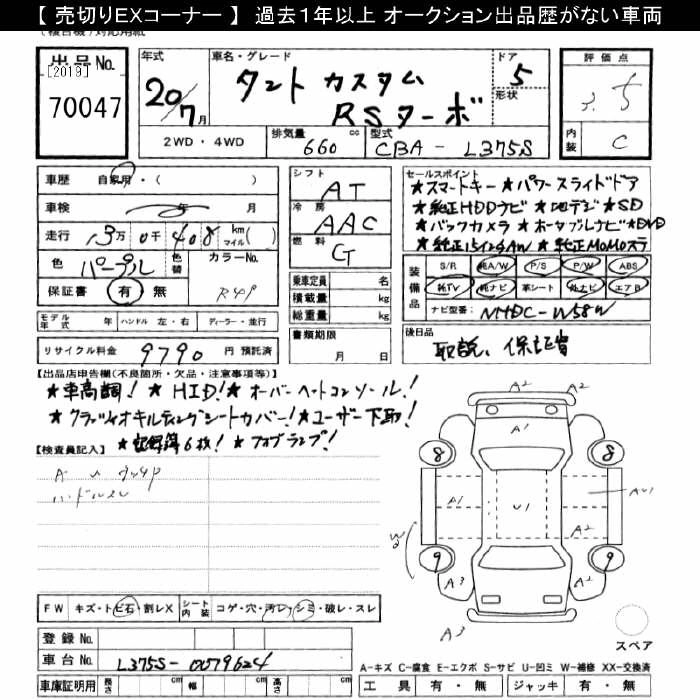 【 売切りEXコーナー 】 過去1年以上 オークション出品歴がない車両
出品No.
[2019]
70047
年式
20/7月
車名・グレード
タント カスタム
RSターボ
ドア
5
形状
評価点
3.5
内装
C
2WD・4WD
排気量
660
cc
型式
CBA - L375S
車歴
自家用・( )
車検
年 月
走行
13万 0千 408
km
マイル( )
色
パープル
色替
カラーNo.
R49
保証書
有・無
シフト
AT
冷房
AAC
燃料
G
乗車定員 名
積載量 kg
総重量 kg
書類期限
月 日
セールスポイント
★スマートキー ★パワースライドドア
★純正HDDナビ ★地デジ ★SD
★バックカメラ ★ポータブルナビ ★DVD
★純正15インチAW ★純正MOMOステ
装備品
S/R 純A/W P/S P/W ABS
純TV 純ナビ 革シート 外ナビ エアB
ナビ型番:
NHDC-W58W
モデル年式 年 ハンドル 左・右 ディーラー・並行
リサイクル料金 9790 円 預託済
後日品
取説、保証書
【出品店申告欄(不良箇所・欠品・注意事項等)】
★車高調! ★HID! ★オーバーヘッドコンソール!
★クラッツィオキルティングシートカバー! ★ユーザー下取!
★記録簿6枚! ★フォグランプ!
【検査員記入】
A2
A2
A1
8
8
A1
U1
A2
AU1
W2
9
9
A3
A2
A3
スペア
FW キズ・トビ石・割レX シート内装 コゲ・穴・汚レ・シミ・破レ・スレ
登録No.
車台No.
L375S-0079624
車庫証明用 長さ cm 幅 cm 高さ cm
A-キズ C-腐食 E-エクボ S-サビ U-凹ミ W-補修 XX-交換済
工具 有・無 ジャッキ 有・無